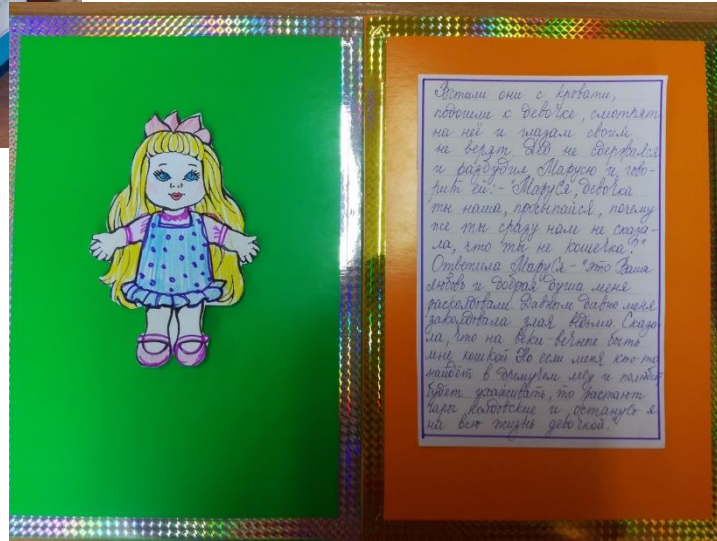 Встали они с кровати,
подошли к девочке, смотрят
на неё и глазам своим
не верят Дед не сдержался
и разбудил Марусю и гово-
рит ей:-"Маруся, девочка
ты наша, просыпайся, почему
же ты сразу нам не сказа-
ла, что ты не кошечка?"
Ответила Маруся-"Это Ваша
любовь и добрая душа меня
расколдовали. Давным давно меня
заколдовала злая ведьма Сказа-
ла, что на веки-вечные быть
мне кошкой Но если меня кто-то
найдёт в дремучем лесу и полюбит
будет ухаживать, то растают
чары колдовские и останусь я
на всю жизнь девочкой."